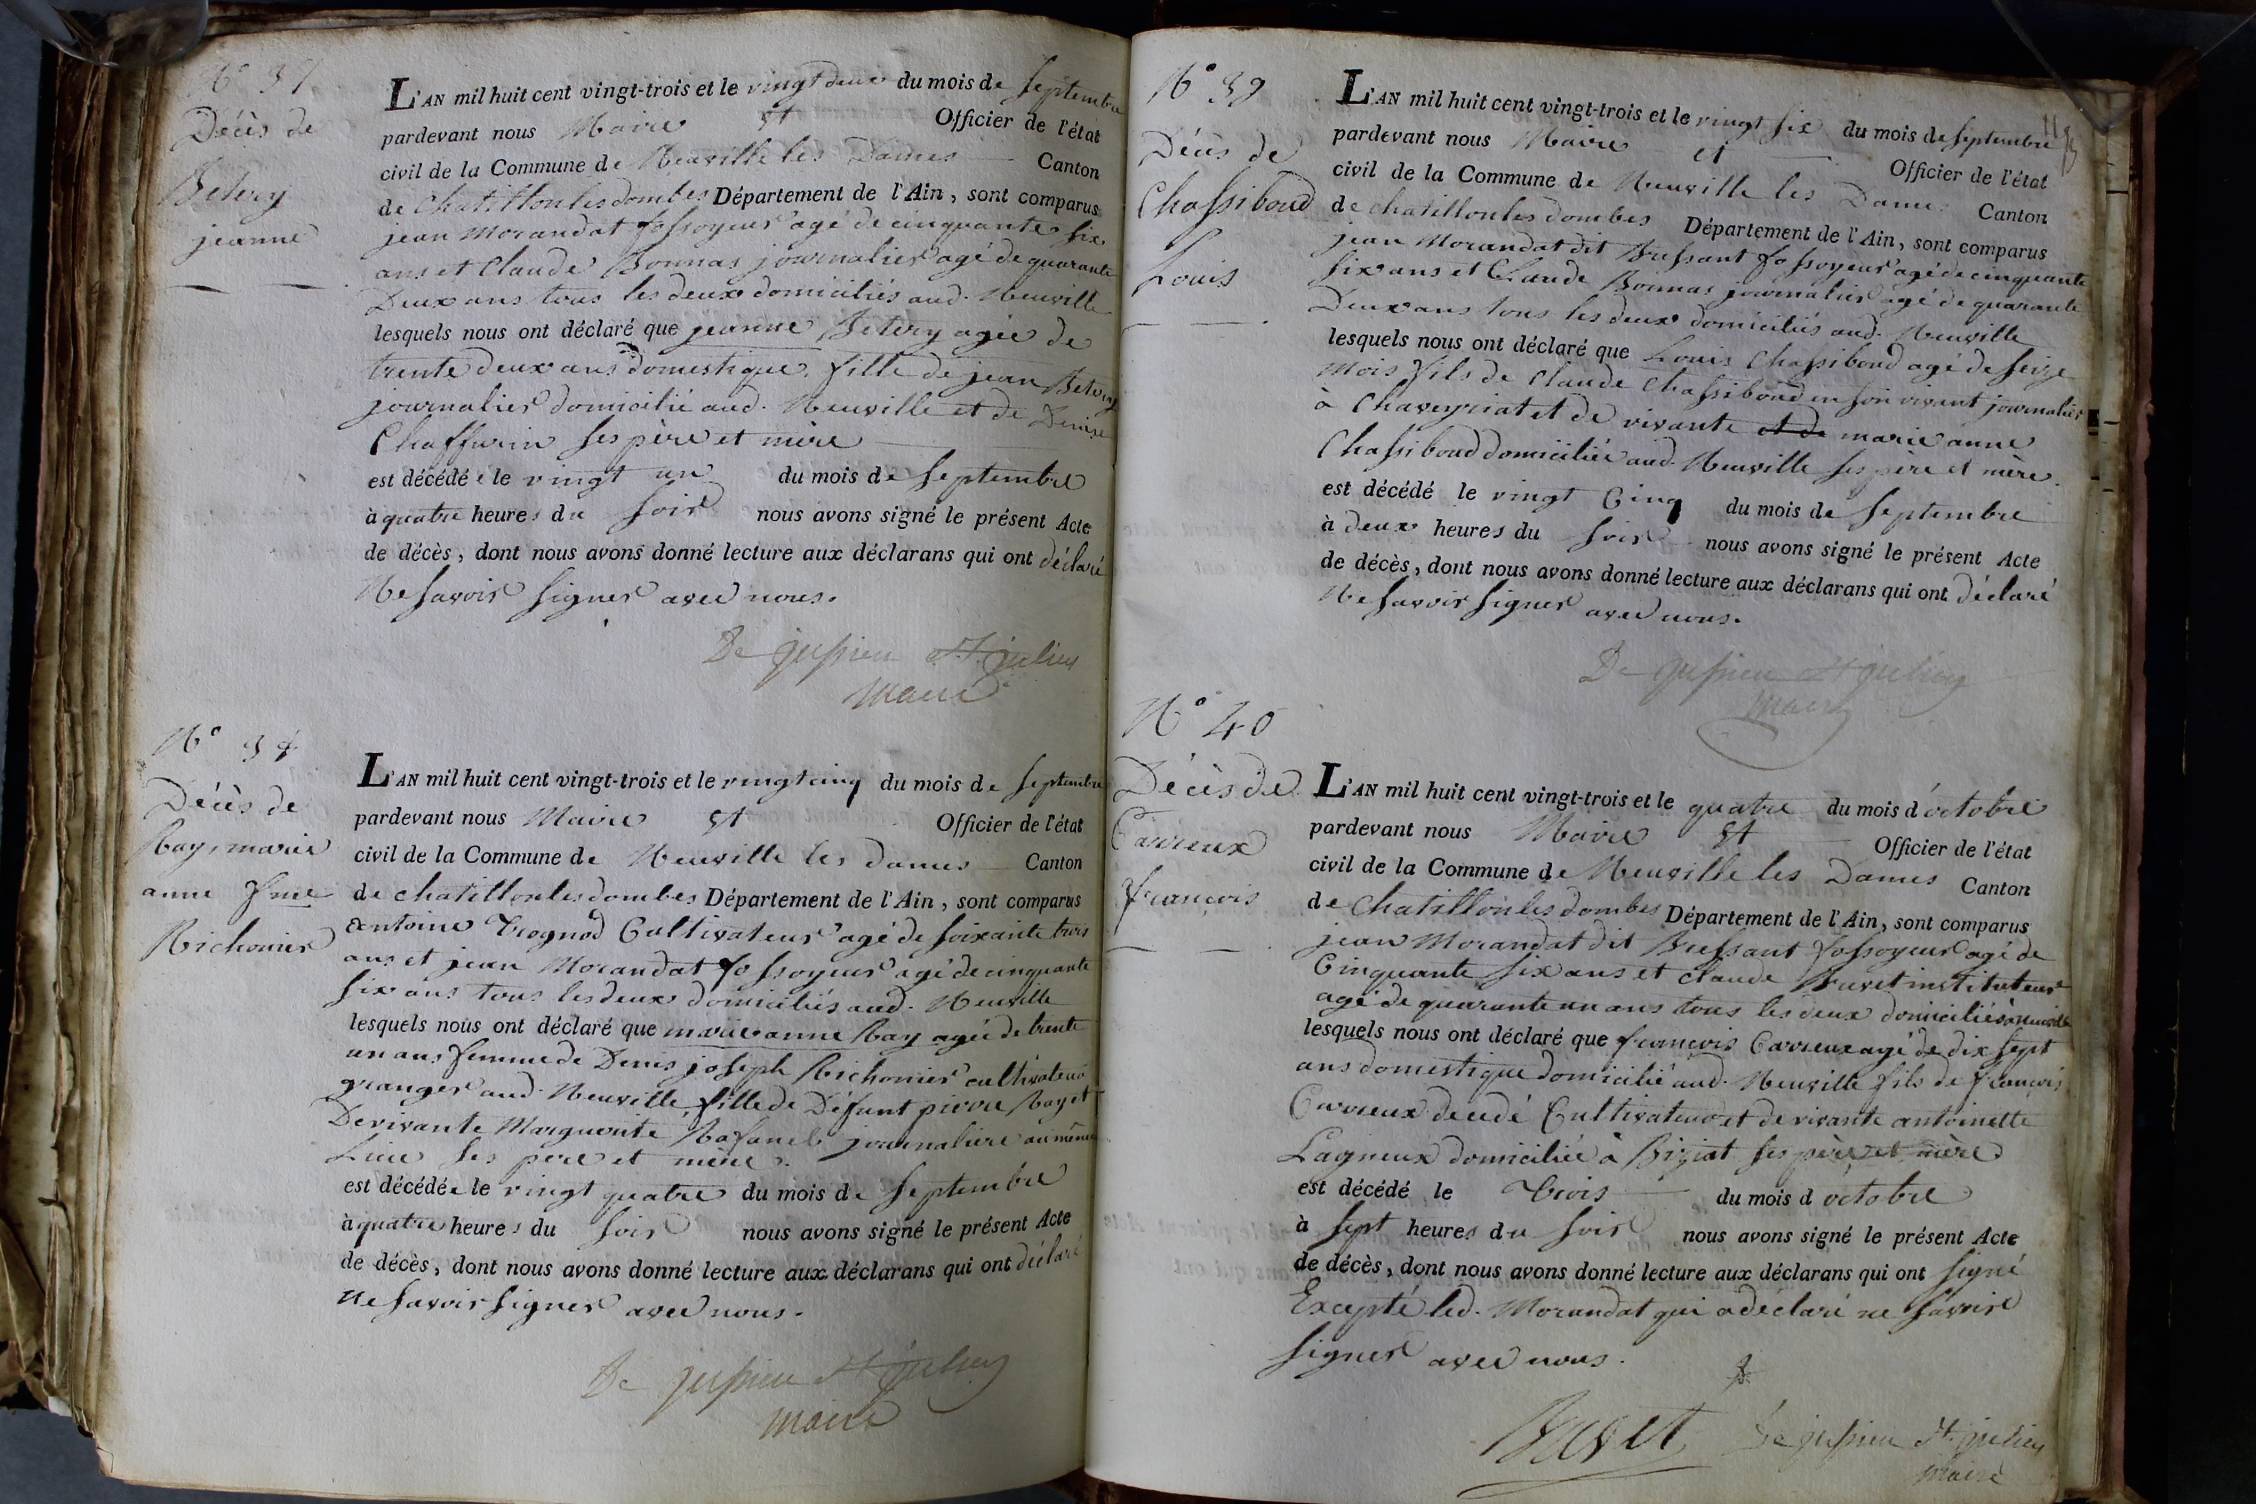 N.° 37
Décès de
Betery
jeanne
L'AN mil huit cent vingt-trois et le vingt deux du mois de septembre
pardevant nous Maire et Officier de l'état
civil de la Commune de Neuville les Dames Canton
de Chatillon les dombes Département de l'Ain, sont comparus
jean Morandat fossoyeur agé de cinquante six
ans et Claude Bonnas journalier agé de quarante
Deux ans tous les deux domiciliés aud. Neuville
lesquels nous ont déclaré que jeanne Betery agée de
trente deux ans domestique. fille de jean Betery
journalier domicilié aud. Neuville et de Denise
Chaffurin ses père et mère
est décédée le vingt un du mois de septembre
à quatre heures du soir nous avons signé le présent Acte
de décès, dont nous avons donné lecture aux déclarans qui ont déclaré
Ne savoir signer avec nous.
De jussieu St julien
maire
N.° 38
Décès de
Ray, marie
anne fme
Richonier
L'AN mil huit cent vingt-trois et le vingt cinq du mois de septembre
pardevant nous Maire et Officier de l'état
civil de la Commune de Neuville les dames Canton
de chatillon les dombes Département de l'Ain, sont comparus
antoine Trognod Cultivateur agé de soixante trois
ans et jean Morandat fossoyeur agé de cinquante
six ans tous les deux domiciliés aud. Neuville
lesquels nous ont déclaré que marie anne Ray agée de trente
un ans femme de Denis joseph Richonier cultivateur
granger aud. Neuville fille de Défunt pierre Ray et
De vivante Marguerite journaliere au même
Lieu ses pere et mère.
est décédée le vingt quatre du mois de septembre
à quatre heures du soir nous avons signé le présent Acte
de décès, dont nous avons donné lecture aux déclarans qui ont déclaré
ne savoir signer avec nous.
De jussieu St julien
maire
N.° 39
Décès de
Chassiboud
Louis
L'AN mil huit cent vingt-trois et le vingt six du mois de septembre
pardevant nous Maire et Officier de l'état
civil de la Commune de Neuville les Dames Canton
de chatillon les dombes Département de l'Ain, sont comparus
jean Morandat dit Bressant fossoyeur agé de cinquante
six ans et Claude Bonnas journalier agé de quarante
Deux ans tous les deux domiciliés aud. Neuville
lesquels nous ont déclaré que Louis Chassiboud agé de seize
mois fils de Claude Chassiboud en son vivant journalier
à Chaveyriat et de vivante et de marie anne
Chassiboud domiciliée aud. Neuville ses père et mère.
est décédé le vingt Cinq du mois de septembre
à deux heures du soir nous avons signé le présent Acte
de décès, dont nous avons donné lecture aux déclarans qui ont déclaré
Ne savoir signer avec nous.
De jussieu St julien
maire
N.° 40
Décès de
Carreux
françois
L'AN mil huit cent vingt-trois et le quatre du mois d'octobre
pardevant nous Maire et Officier de l'état
civil de la Commune de Neuville les Dames Canton
de Chatillon les dombes Département de l'Ain, sont comparus
jean Morandat dit Bressant fossoyeur agé de
Cinquante six ans et claude Buvet instituteur
agé de quarante un ans tous les deux domiciliés à Neuville
lesquels nous ont déclaré que françois Carreux agé de dix sept
ans domestique domicilié aud. Neuville fils de françois
Carreux décédé Cultivateur et de vivante antoinette
Lagneux domiciliée à Biziat ses père et mère
est décédé le Trois du mois d'octobre
à sept heures du soir nous avons signé le présent Acte
de décès, dont nous avons donné lecture aux déclarans qui ont signé
Excepté led. Morandat qui a déclaré ne savoir
signer avec nous.
Buvet De jussieu St julien
maire